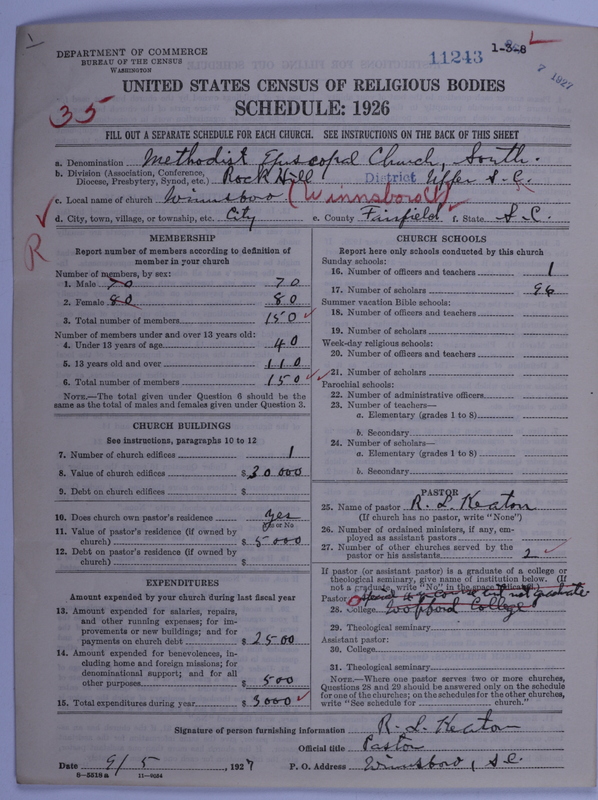 DEPARTMENT OF COMMERCE
BUREAU OF THE CENSUS
WASHINGTON
11243
1-3-8
7 1927
UNITED STATES CENSUS OF RELIGIOUS BODIES
SCHEDULE: 1926
35
FILL OUT A SEPARATE SCHEDULE FOR EACH CHURCH. SEE INSTRUCTIONS ON THE BACK OF THIS SHEET
a. Denomination Methodist Episcopal Church, South.
b. Division (Association, Conference, Diocese, Presbytery, Synod, etc.) Rock Hill District Upper S. C.
c. Local name of church Winnsboro (Winnsboro)
d. City, town, village, or township, etc. City e. County Fairfield f. State S.C.
R
MEMBERSHIP
Report number of members according to definition of member in your church
Number of members, by sex:
1. Male 70 70
2. Female 80 80
3. Total number of members 150
Number of members under and over 13 years old:
4. Under 13 years of age 40
5. 13 years old and over 110
6. Total number of members 150
NOTE.—The total given under Question 6 should be the same as the total of males and females given under Question 3.
CHURCH BUILDINGS
See instructions, paragraphs 10 to 12
7. Number of church edifices 1
8. Value of church edifices $ 30000
9. Debt on church edifices $
10. Does church own pastor's residence Yes
Yes or No
11. Value of pastor's residence (if owned by church) $ 5000
12. Debt on pastor's residence (if owned by church) $
EXPENDITURES
Amount expended by your church during last fiscal year
13. Amount expended for salaries, repairs, and other running expenses; for improvements or new buildings; and for payments on church debt $ 2500
14. Amount expended for benevolences, including home and foreign missions; for denominational support; and for all other purposes $ 500
15. Total expenditures during year $ 3000
CHURCH SCHOOLS
Report here only schools conducted by this church
Sunday schools:
16. Number of officers and teachers 1
17. Number of scholars 96
Summer vacation Bible schools:
18. Number of officers and teachers
19. Number of scholars
Week-day religious schools:
20. Number of officers and teachers
21. Number of scholars
Parochial schools:
22. Number of administrative officers
23. Number of teachers—
a. Elementary (grades 1 to 8)
b. Secondary
24. Number of scholars—
a. Elementary (grades 1 to 8)
b. Secondary
PASTOR
25. Name of pastor R. L. Keaton
(If church has no pastor, write "None")
26. Number of ordained ministers, if any, employed as assistant pastors
27. Number of other churches served by the pastor or his assistants 2
If pastor (or assistant pastor) is a graduate of a college or theological seminary, give name of institution below. (If not a graduate, write "No" in the space
Pastor but not graduate
28. College Wofford College
29. Theological seminary
Assistant pastor:
30. College
31. Theological seminary
NOTE.—Where one pastor serves two or more churches, Questions 28 and 29 should be answered only on the schedule for one of the churches; on the schedule for the other churches, write "See schedule for church."
Signature of person furnishing information R. L. Keaton
Official title Pastor
Date 9/5, 1927 P. O. Address Winnsboro, S.C.
8-5518a 11-9124